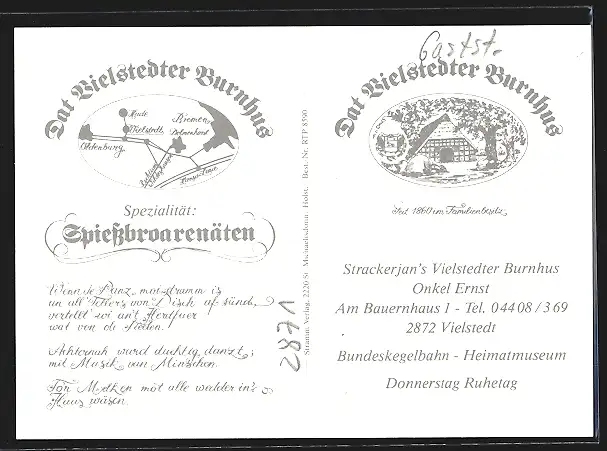 Dat Vielstedter Burnhus
Hude
Vielstedt
Bremen
Delmenhorst
Oldenburg
Spezialität:
Spießbroarenäten
un all' Tellers von'n Disch af sünd,
vertellt wi an't Herdfuer
wat von ole Tieden.
Achternah ward duchtig danzt,
mit Musik van Minschen.
Hus wäsen.
2871
Stramm, Verlag, 2220 St. Michaelisdonn, Holst. Best.-Nr. RTP 8590
Gastst.
Dat Vielstedter Burnhus
Seit 1860 im Familienbesitz
Strackerjan's Vielstedter Burnhus
Onkel Ernst
Am Bauernhaus 1 - Tel. 04408/369
2872 Vielstedt
Bundeskegelbahn - Heimatmuseum
Donnerstag Ruhetag